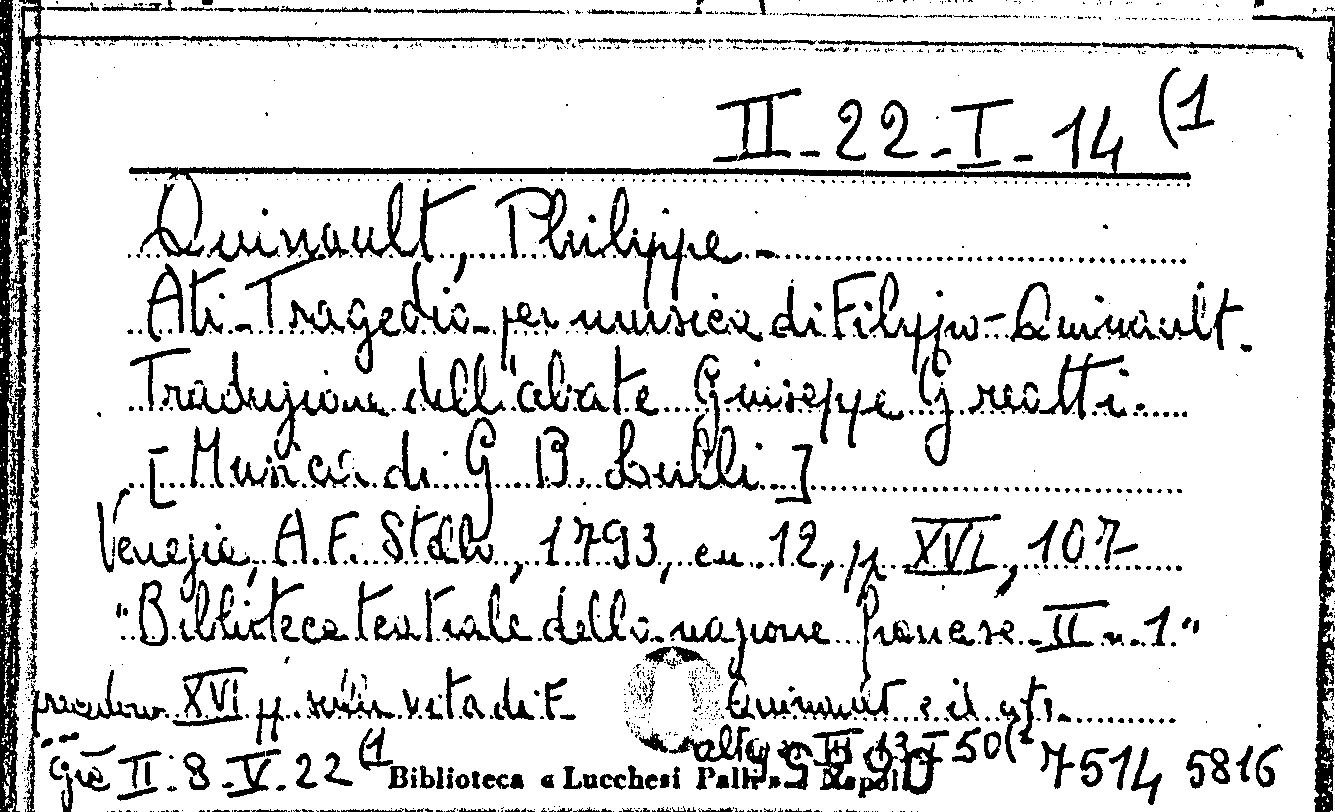 II-22-I-14 (1
Quinault, Philippe-
Ati-Tragedia per musica di Filippo-Quinault.
Traduzione dell'abate Giuseppe Greatti.
[Musica di G B. Lulli.]
Venezia, A.F. Stella, 1793, in 12, pp XVI, 107-
"Biblioteca teatrale della nazione francese-II n. 1."
precedono XVI pp. sulla vita di F. Quinault e il
già II.8-V.22 (1
Biblioteca « Lucchesi Palli » - Napoli
7514 5816